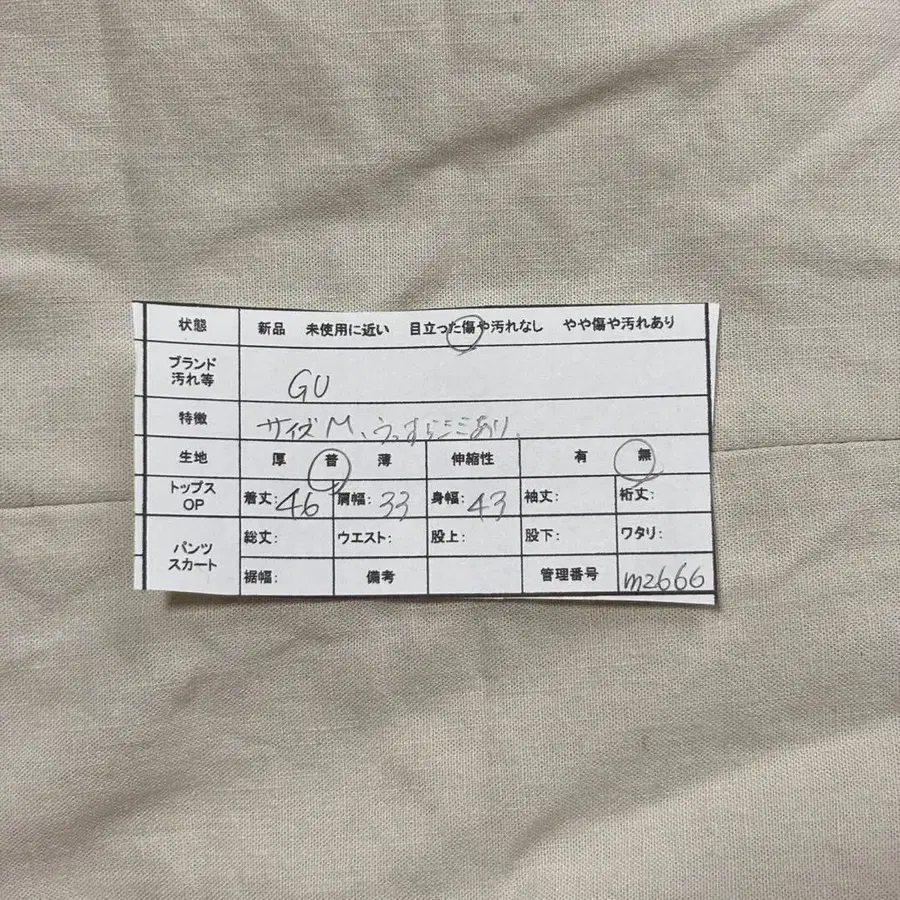 状態 新品 未使用に近い 目立った傷や汚れなし やや傷や汚れあり
ブランド
汚れ等
GU
特徴 サイズM、うっすらシミあり、
生地 厚 普 薄 伸縮性 有 無
トップス
OP
着丈:46 肩幅:33 身幅:43 袖丈: 裄丈:
パンツ
スカート
総丈: ウエスト: 股上: 股下: ワタリ:
裾幅: 備考 管理番号 m2666